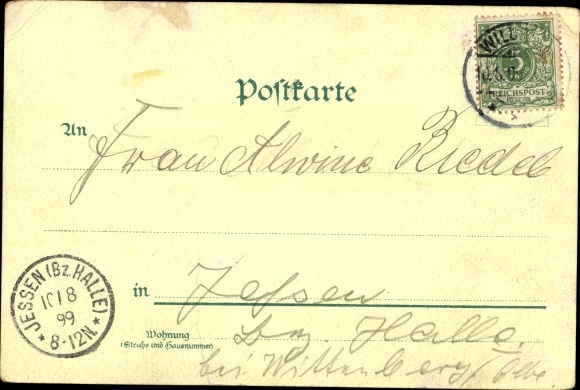 WILL
5
REICHSPOST
Postkarte
An
Frau Alwine Riedel
in
Jessen
Bz. Halle.
Wohnung
(Straße und Hausnummer)
bei Wittenberg / Elbe
JESSEN (BZ. HALLE)
10/8
99
* 8-12N. *